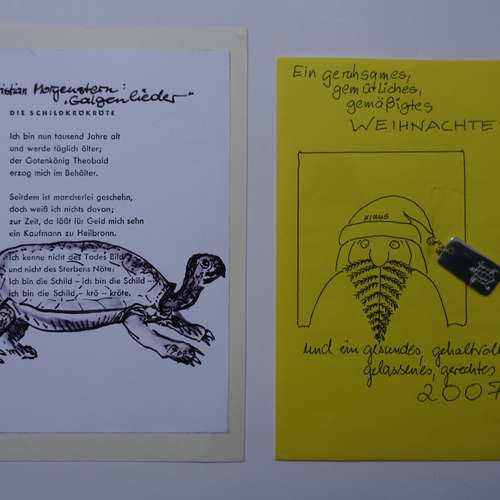 Christian Morgenstern:
"Galgenlieder"
DIE SCHILDKRÖKRÖTE
Ich bin nun tausend Jahre alt
und werde täglich älter;
der Gotenkönig Theobald
erzog mich im Behälter.
Seitdem ist mancherlei geschehn,
doch weiß ich nichts davon;
zur Zeit, da läßt für Geld mich sehn
ein Kaufmann zu Heilbronn.
Ich kenne nicht des Todes Bild
und nicht des Sterbens Nöte:
Ich bin die Schild – ich bin die Schild –
ich bin die Schild – krö – kröte.
Ein geruhsames,
gemütliches,
gemäßigtes
WEIHNACHTE
KLAUS
und ein gesundes, gehaltvoll
gelassenes, gerechtes
2007